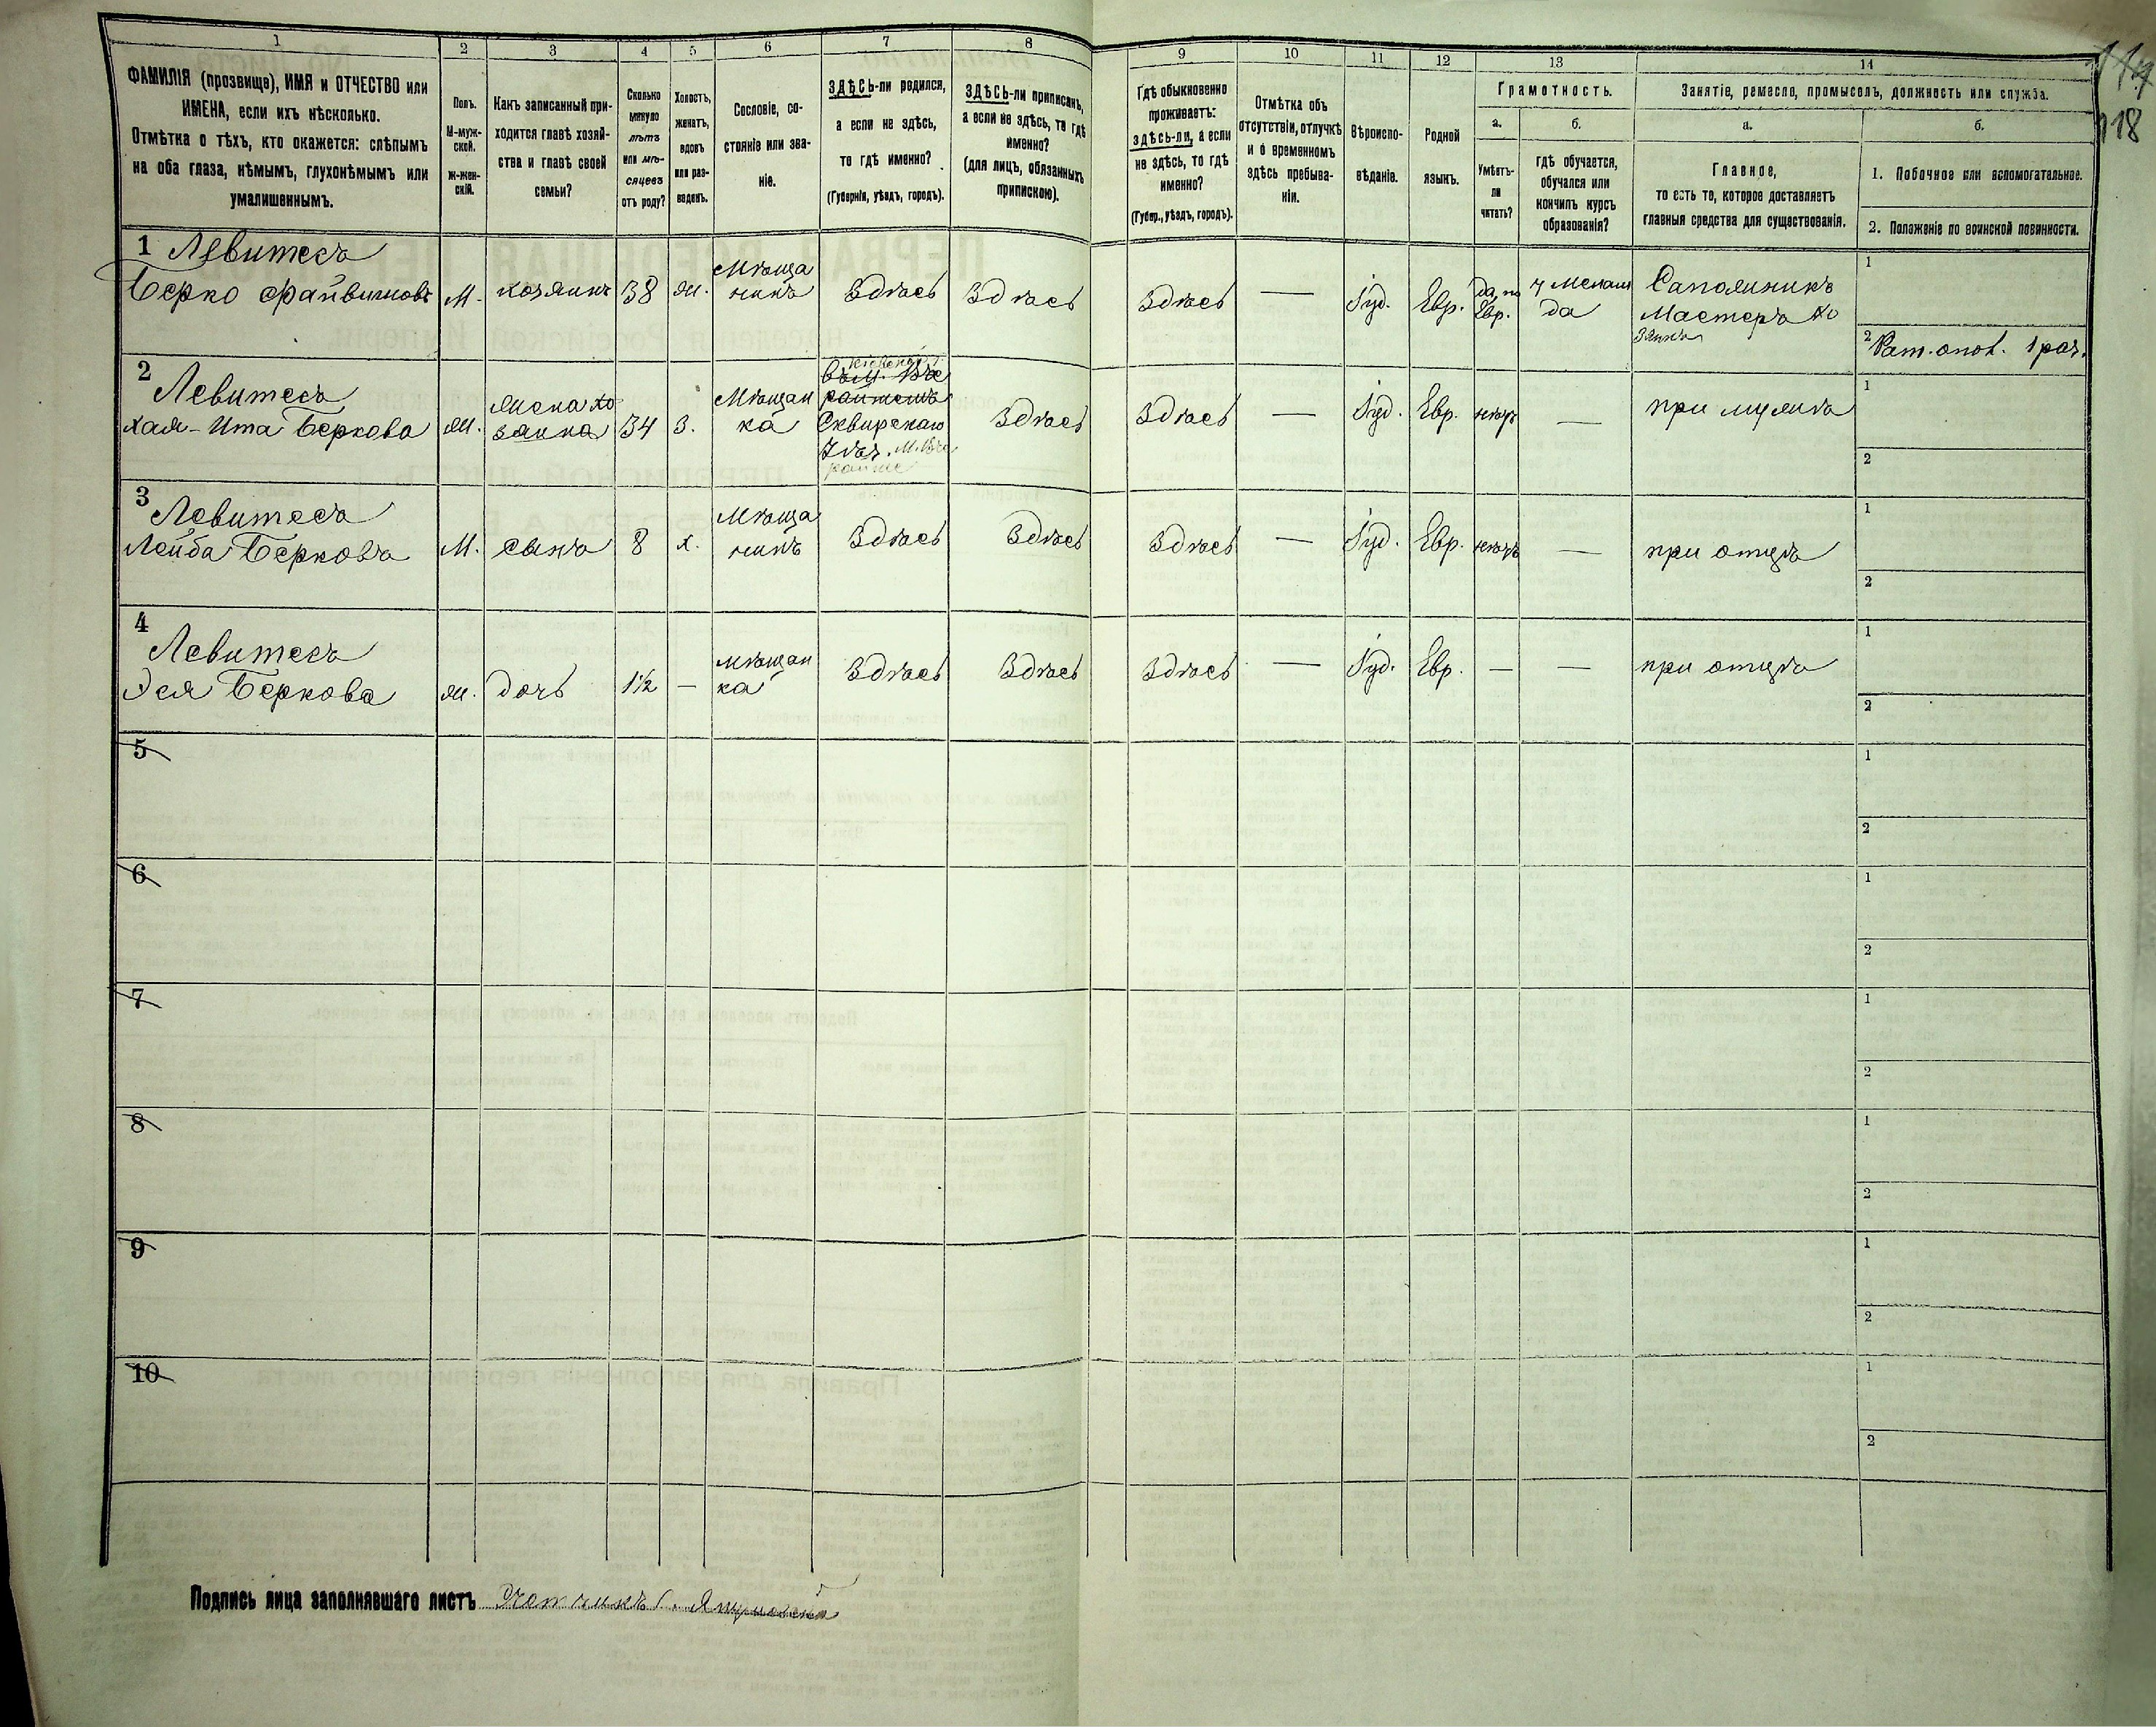 1
2
3
4
5
6
7
8
9
10
11
12
13
14
118
ФАМИЛІЯ (прозвище), ИМЯ и ОТЧЕСТВО или
ИМЕНА, если ихъ нѣсколько.
Отмѣтка о тѣхъ, кто окажется: слѣпымъ
на оба глаза, нѣмымъ, глухонѣмымъ или
умалишеннымъ.
Полъ.
М-муж-
ской.
Ж-жен-
скій.
Какъ записанный при-
ходится главѣ хозяй-
ства и главѣ своей
семьи?
Сколько
минуло
лѣтъ
или мѣ-
сяцевъ
отъ роду?
Холостъ,
женатъ,
вдовъ
или раз-
веденъ.
Сословіе, со-
стояніе или зва-
ніе.
ЗДѢСЬ-ли родился,
а если не здѣсь,
то гдѣ именно?
(Губернія, уѣздъ, городъ).
ЗДѢСЬ-ли приписанъ,
а если не здѣсь, то гдѣ
именно?
(для лицъ, обязанныхъ
припискою).
Гдѣ обыкновенно
проживаетъ:
здѣсь-ли, а если
не здѣсь, то гдѣ
именно?
(Губер., уѣздъ, городъ).
Отмѣтка объ
отсутствіи, отлучкѣ
и о временномъ
здѣсь пребыва-
ніи.
Вѣроиспо-
вѣданіе.
Родной
языкъ.
Грамотность.
а.
Умѣетъ-
ли
читать?
б.
гдѣ обучается,
обучался или
кончилъ курсъ
образованія?
Занятіе, ремесло, промыселъ, должность или служба.
а.
Главное,
то есть то, которое доставляетъ
главныя средства для существованія.
б.
1. Побочное или вспомогательное.
2. Положеніе по воинской повинности.
1 Левитесъ
Берко Файвишовъ
М.
хозяинъ
38
ж.
Мѣща
нинъ
Здѣсь
Здѣсь
Здѣсь
—
Іуд.
Евр.
Да, по
Евр.
У Мелам
да
Сапожникъ
Мастеръ хо
зяинъ
1
2 Рат. опол. 1 раз.
2
Левитесъ
Хая-Ита Беркова
ж.
жена хо
зяина
34
з.
Мѣщан
ка
Сквирскаго
Уѣз.
Здѣсь
Здѣсь
—
Іуд.
Евр.
нѣтъ
—
при мужѣ
1
2
3
Левитесъ
Лейба Берковъ
М.
сынъ
8
х.
Мѣща
нинъ
Здѣсь
Здѣсь
Здѣсь
—
Іуд.
Евр.
нѣтъ
—
при отцѣ
1
2
4
Левитесъ
Эся Беркова
ж.
дочь
1½
—
мѣщан
ка
Здѣсь
Здѣсь
Здѣсь
—
Іуд.
Евр.
—
—
при отцѣ
1
2
5
1
2
6
1
2
7
1
2
8
1
2
9
1
2
10
1
2
Подпись лица заполнявшаго листъ Счетчикъ